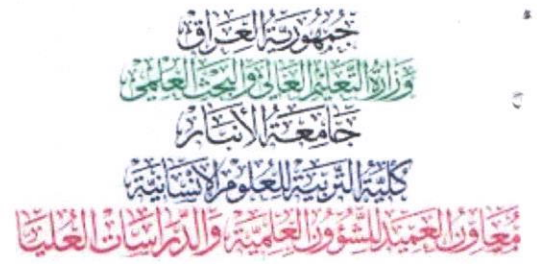 جمهورية العراق
وزارة التعليم العالي والبحث العلمي
جامعة الأنبار
كلية التربية للعلوم الإنسانية
معاون العميد للشؤون العلمية والدراسات العليا